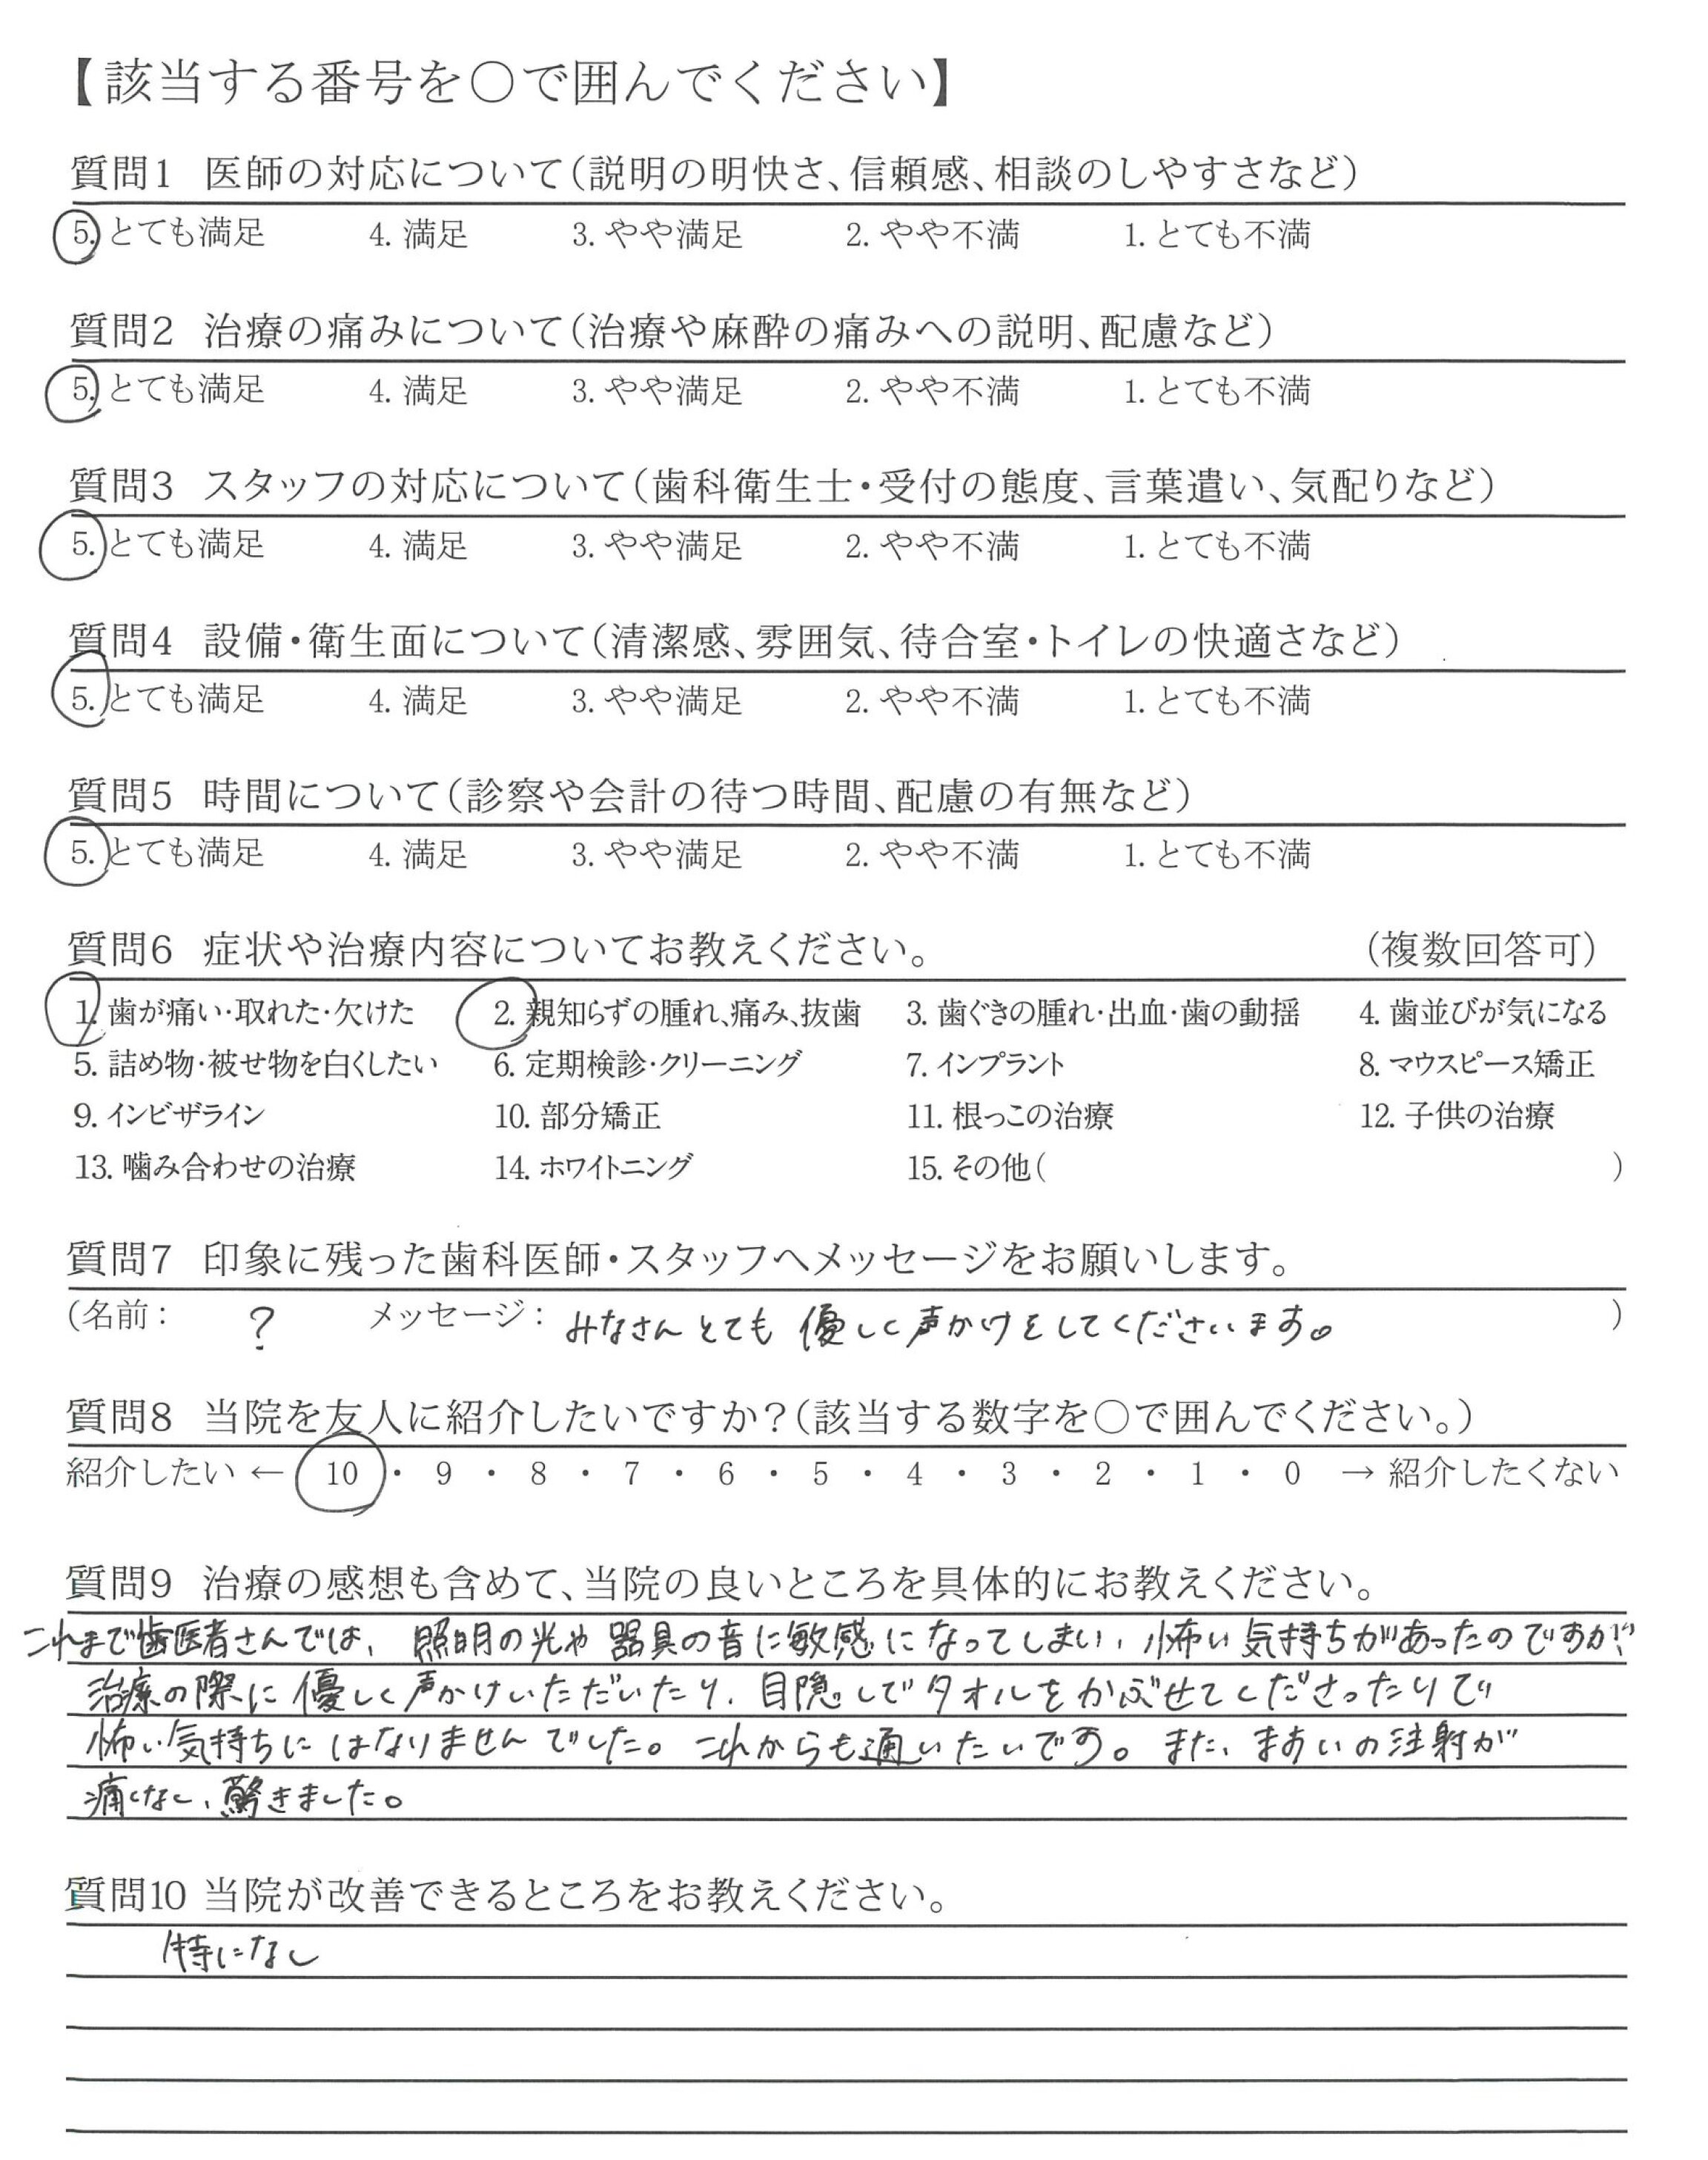 【該当する番号を○で囲んでください】
質問1 医師の対応について(説明の明快さ、信頼感、相談のしやすさなど)
5. とても満足 4. 満足 3. やや満足 2. やや不満 1. とても不満
質問2 治療の痛みについて(治療や麻酔の痛みへの説明、配慮など)
5. とても満足 4. 満足 3. やや満足 2. やや不満 1. とても不満
質問3 スタッフの対応について(歯科衛生士・受付の態度、言葉遣い、気配りなど)
5. とても満足 4. 満足 3. やや満足 2. やや不満 1. とても不満
質問4 設備・衛生面について(清潔感、雰囲気、待合室・トイレの快適さなど)
5. とても満足 4. 満足 3. やや満足 2. やや不満 1. とても不満
質問5 時間について(診察や会計の待つ時間、配慮の有無など)
5. とても満足 4. 満足 3. やや満足 2. やや不満 1. とても不満
質問6 症状や治療内容についてお教えください。 (複数回答可)
1. 歯が痛い・取れた・欠けた 2. 親知らずの腫れ、痛み、抜歯 3. 歯ぐきの腫れ・出血・歯の動揺 4. 歯並びが気になる
5. 詰め物・被せ物を白くしたい 6. 定期検診・クリーニング 7. インプラント 8. マウスピース矯正
9. インビザライン 10. 部分矯正 11. 根っこの治療 12. 子供の治療
13. 噛み合わせの治療 14. ホワイトニング 15. その他( )
質問7 印象に残った歯科医師・スタッフへメッセージをお願いします。
(名前: ? メッセージ: みなさんとても優しく声かけをしてくださいます。 )
質問8 当院を友人に紹介したいですか?(該当する数字を○で囲んでください。)
紹介したい ← 10 ・ 9 ・ 8 ・ 7 ・ 6 ・ 5 ・ 4 ・ 3 ・ 2 ・ 1 ・ 0 → 紹介したくない
質問9 治療の感想も含めて、当院の良いところを具体的にお教えください。
これまで歯医者さんでは、照明の光や器具の音に敏感になってしまい、怖い気持ちがあったのですが、
治療の際に優しく声かけいただいたり、目隠しでタオルをかぶせてくださったりで
怖い気持ちにはなりませんでした。これからも通いたいです。また、ますいの注射が
痛くなく、驚きました。
質問10 当院が改善できるところをお教えください。
特になし